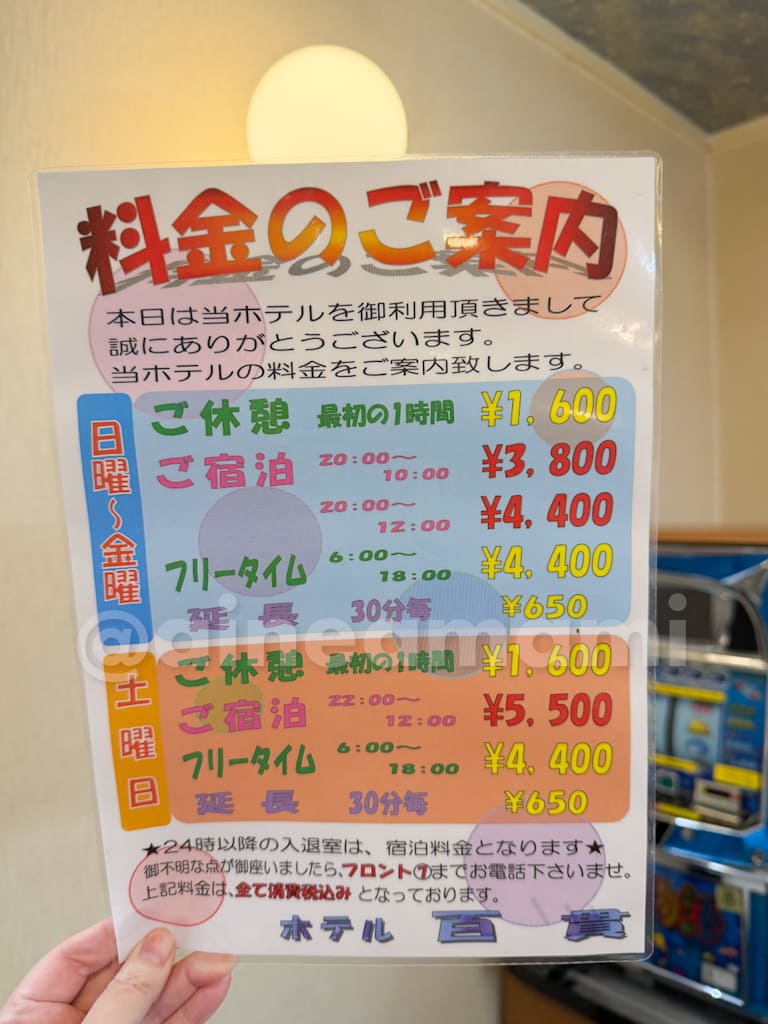 料金のご案内
本日は当ホテルを御利用頂きまして
誠にありがとうございます。
当ホテルの料金をご案内致します。
日曜～金曜
ご休憩 最初の1時間 ¥1,600
ご宿泊 20:00～10:00 ¥3,800
20:00～12:00 ¥4,400
フリータイム 6:00～18:00 ¥4,400
延長 30分毎 ¥650
@gineamami
土曜日
ご休憩 最初の1時間 ¥1,600
ご宿泊 22:00～12:00 ¥5,500
フリータイム 6:00～18:00 ¥4,400
延長 30分毎 ¥650
★24時以降の入退室は、宿泊料金となります★
御不明な点が御座いましたら、フロント⑦までお電話下さいませ。
上記料金は、全て消費税込み となっております。
ホテル 百貫